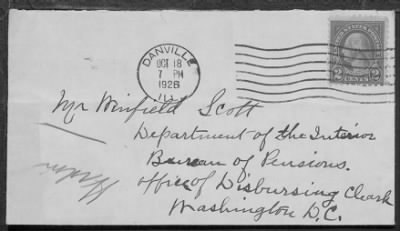 DANVILLE
OCT 18
7 PM
1926
ILL.
2 CENTS 2
Mr Winfield Scott
Department of the Interior
Bureau of Pensions.
Office of Disbursing Clerk
Washington D.C.